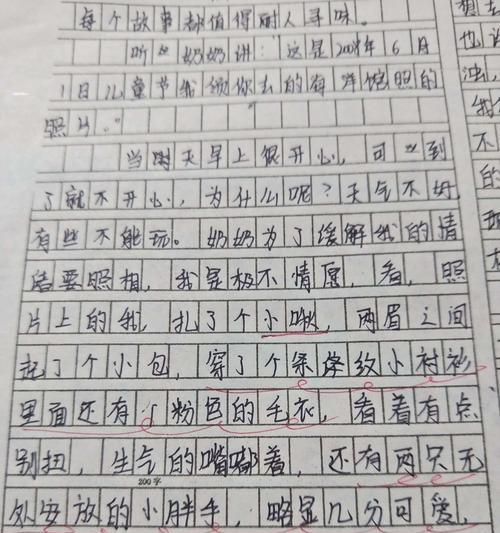 每个故事都值得耐人寻味。
听奶奶讲："这是2008年6月
1日儿童节我领你去的有洋馆照的
照片。"
当时天早上很开心，可到
了就不开心，为什么呢？天气不好
有些不能玩。奶奶为了缓解我的情
绪要照相，我是极不情愿，看，照
片上的我，扎了个小啾，两眉之间
起了个小包，穿了个条纹小衬衫
里面还有个粉色的毛衣，看着有点
别扭，生气的嘴嘟着，还有两只无
200字
处安放的小胖手，略显几分可爱，
想去
也说
浊
我
的